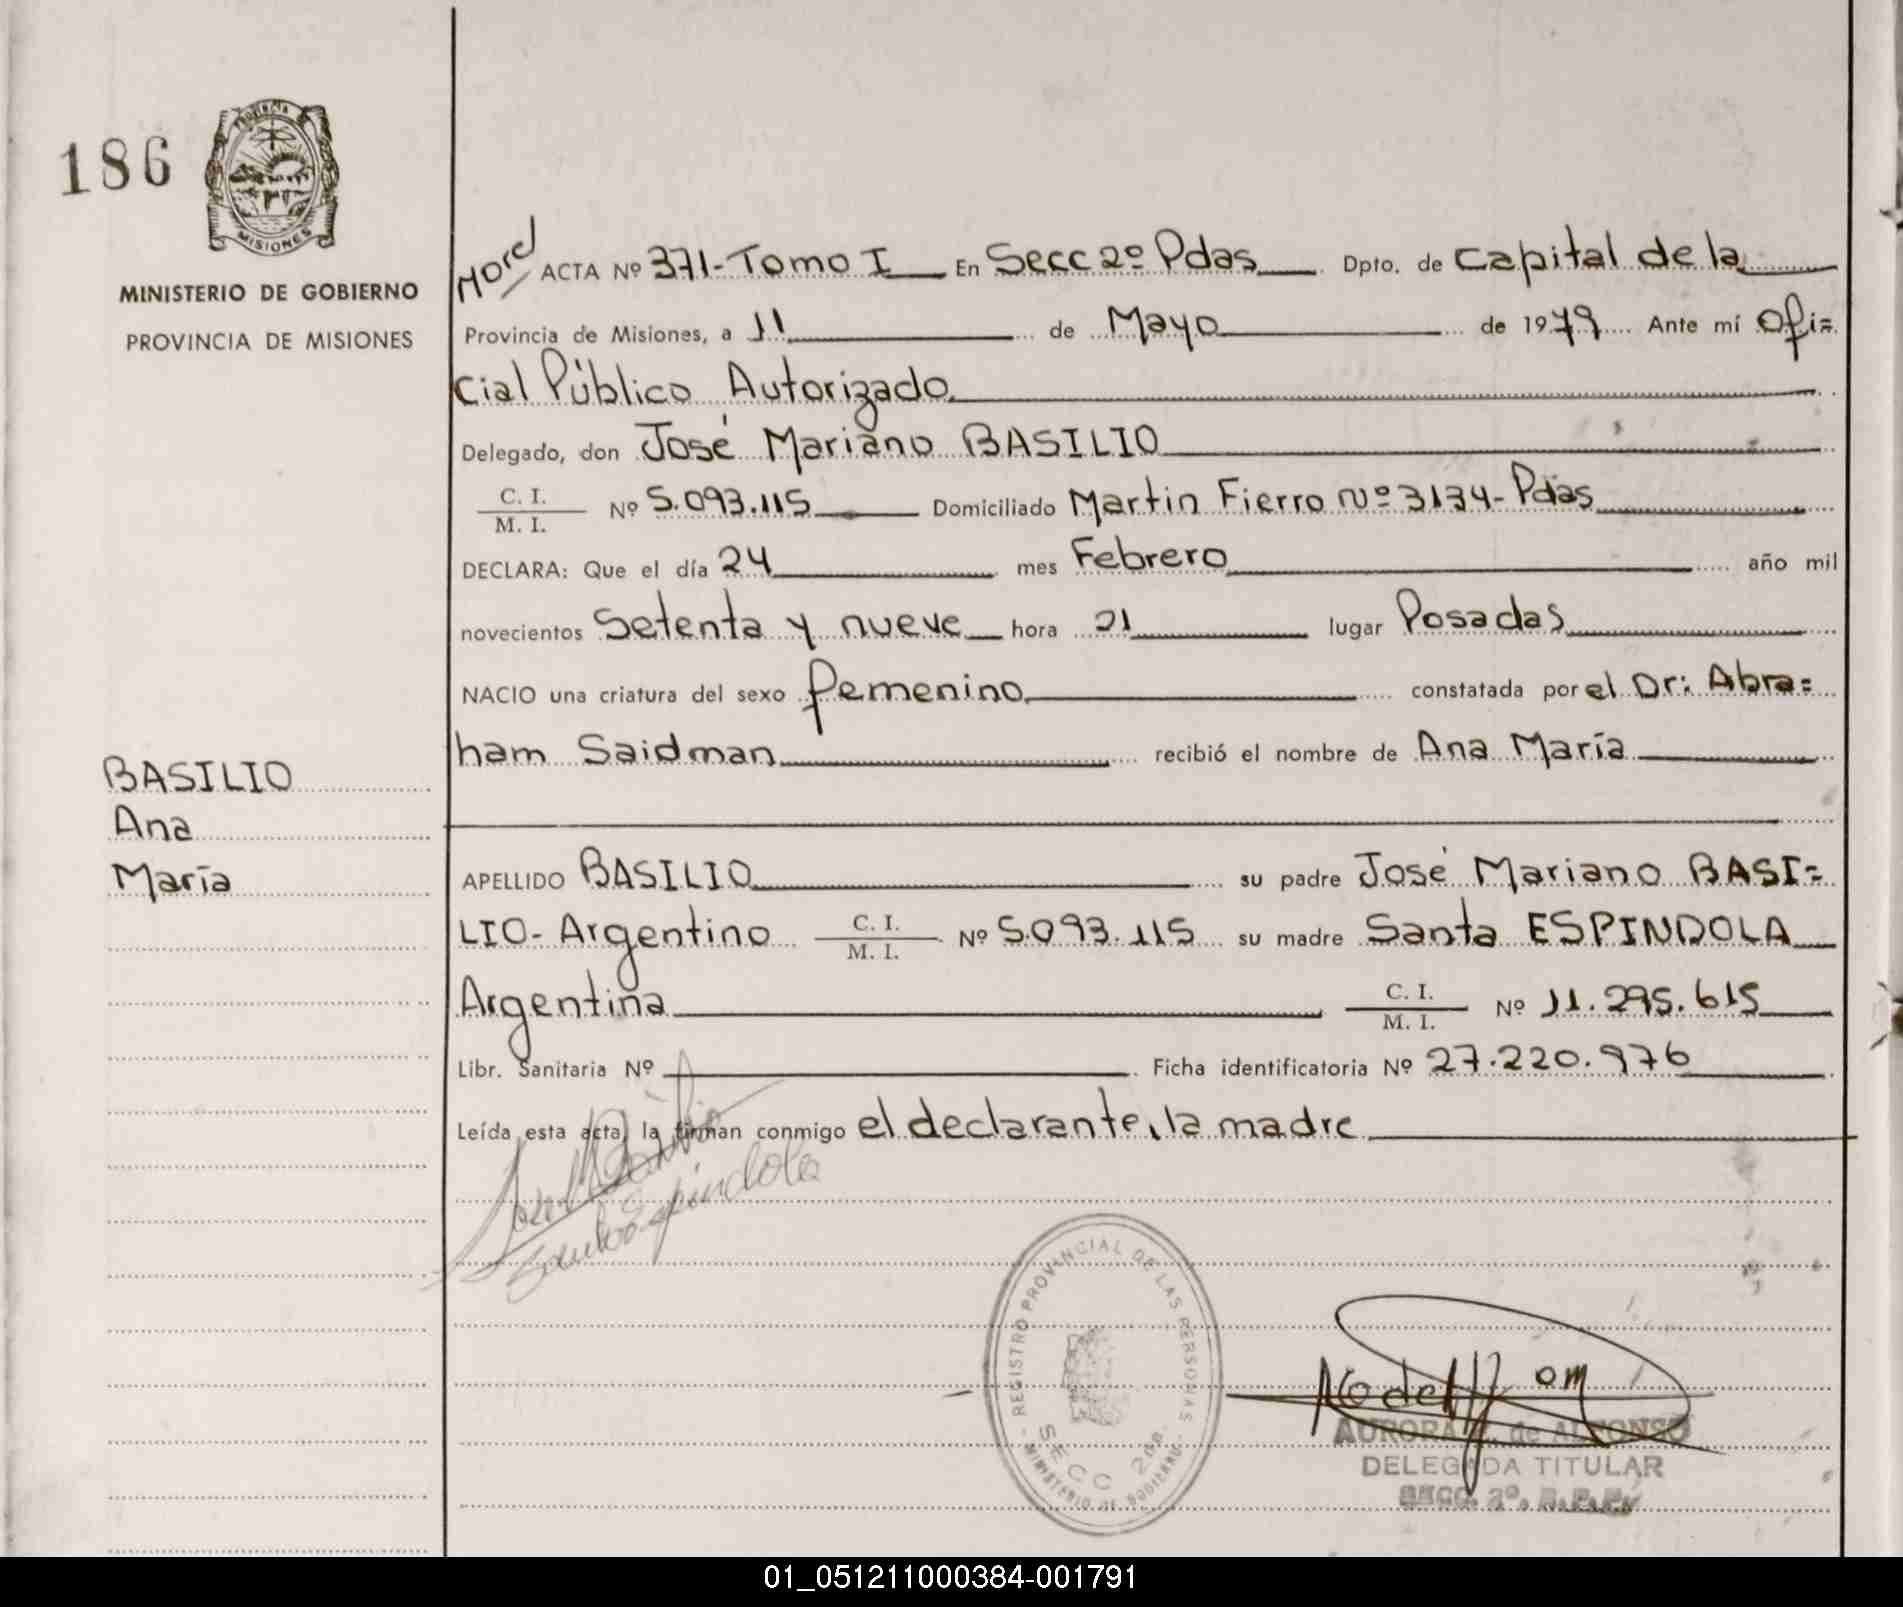 186
PROVINCIA
MISIONES
MINISTERIO DE GOBIERNO
PROVINCIA DE MISIONES
ACTA Nº 371-Tomo I En Secc 2º Pdas Dpto. de Capital de la
Provincia de Misiones, a 11 de Mayo de 1979 Ante mí Ofi=
cial Público Autorizado
Delegado, don José Mariano BASILIO
C. I.
M. I. Nº 5.093.115 Domiciliado Martin Fierro Nº 3134-Pdas
DECLARA: Que el día 24 mes Febrero año mil
novecientos Setenta y nueve hora 21 lugar Posadas
NACIO una criatura del sexo femenino constatada por el Dr: Abra=
ham Saidman recibió el nombre de Ana María
BASILIO
Ana
María
APELLIDO BASILIO su padre José Mariano BASI=
LIO- Argentino C. I. M. I. Nº 5.093.115 su madre Santa ESPINDOLA
Argentina C. I. M. I. Nº 11.295.615
Libr. Sanitaria Nº Ficha identificatoria Nº 27.220.976
Leída esta acta, la firman conmigo el declarante, la madre
REGISTRO PROVINCIAL DE LAS PERSONAS
SECC 2da
MINISTERIO DE GOBIERNO
AURORA de ALFONSO
DELEGADA TITULAR
SECC. 2º. R.P.P.
01_051211000384-001791